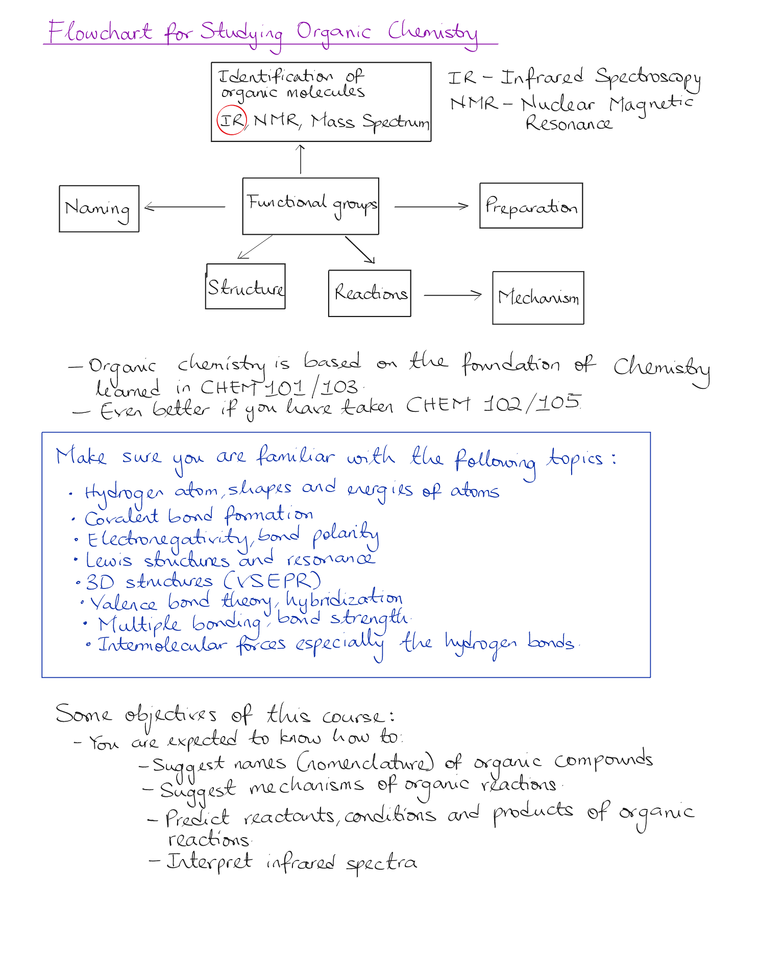 Flowchart for Studying Organic Chemistry
Identification of
organic molecules
IR, NMR, Mass Spectrum
IR – Infrared Spectroscopy
NMR – Nuclear Magnetic
Resonance
Naming
Functional groups
Preparation
Structure
Reactions
Mechanism
– Organic chemistry is based on the foundation of Chemistry
learned in CHEM 101/103.
– Even better if you have taken CHEM 102/105.
Make sure you are familiar with the following topics:
• Hydrogen atom, shapes and energies of atoms
• Covalent bond formation
• Electronegativity, bond polarity
• Lewis structures and resonance
• 3D structures (VSEPR)
• Valence bond theory, hybridization
• Multiple bonding, bond strength.
• Intemolecular forces especially the hydrogen bonds.
Some objectives of this course:
– You are expected to know how to:
– Suggest names (nomenclature) of organic compounds
– Suggest mechanisms of organic reactions.
– Predict reactants, conditions and products of organic
reactions.
– Interpret infrared spectra